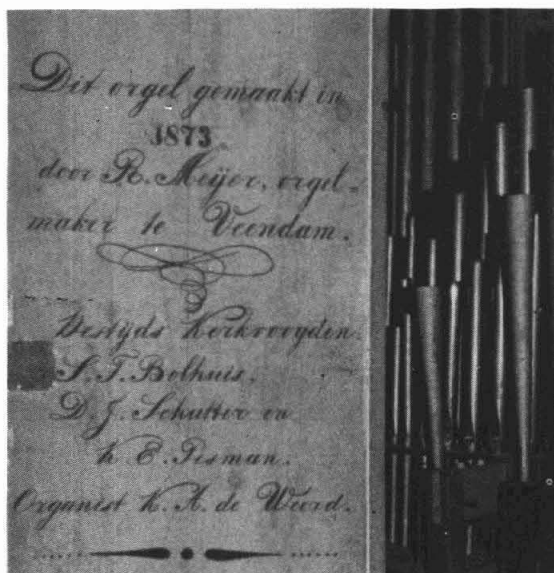 Dit orgel gemaakt in
1873
door R. Meijer, orgel-
maker te Veendam.
Destijds Kerkvoogden
S. T. Bolhuis,
D. J. Schutter en
K. E. Tisman.
Organist K. A. de Weerd.